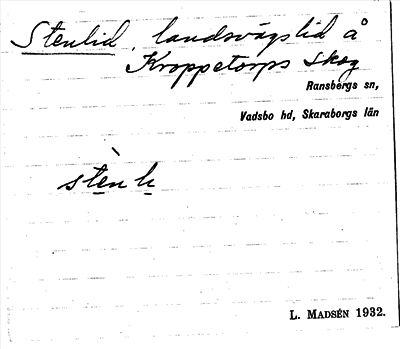 Stenlid, landsvägslid å
Kroppetorps skog
Ransbergs sn,
Vadsbo hd, Skaraborgs län
L. MADSÉN 1932.